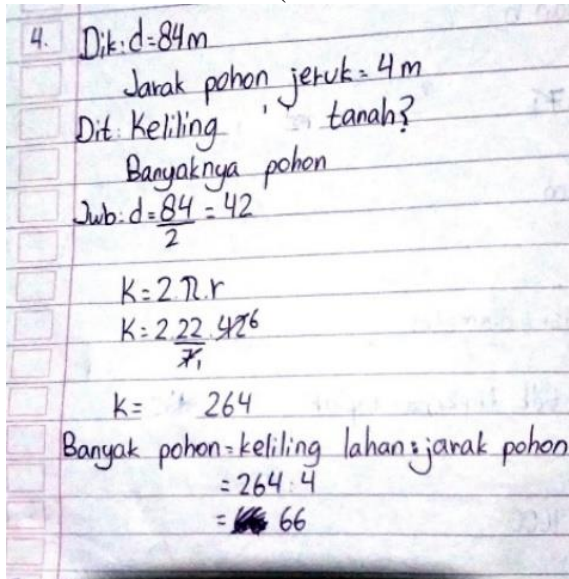 4. Dik: d = 84 m
Jarak pohon jeruk = 4 m
Dit: Keliling tanah?
Banyaknya pohon
Jwb: d = 84/2 = 42
K = 2.π.r
K = 2.22/7 1 . 42 6
K = 264
Banyak pohon = keliling lahan : jarak pohon
= 264 : 4
= 66